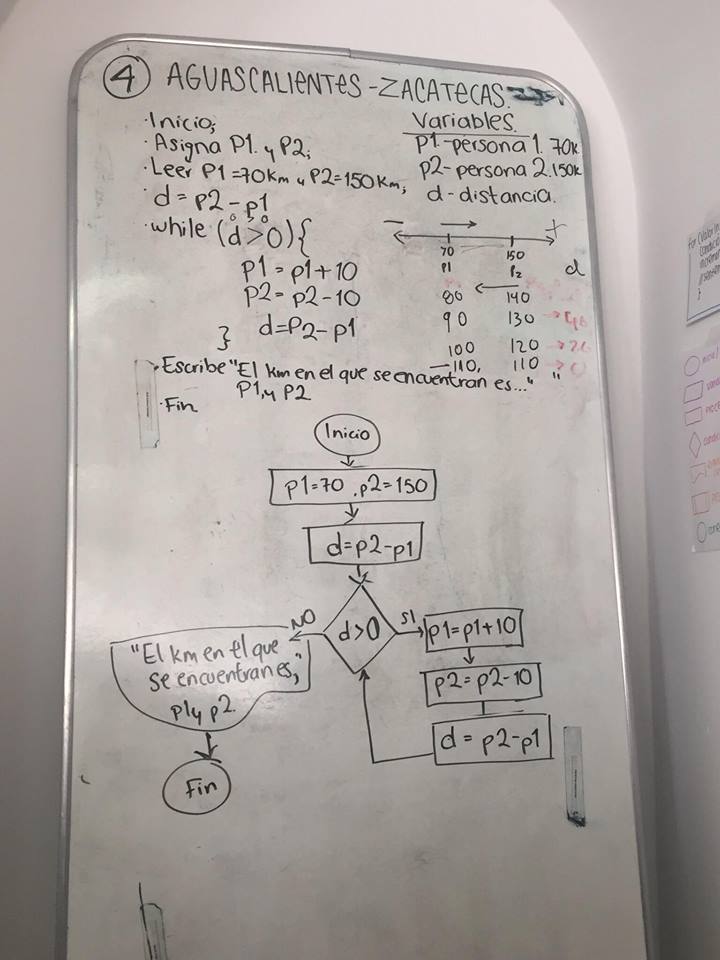 4 AGUASCALIENTES - ZACATECAS
· Inicio;
· Asigna P1. y P2;
· Leer P1 = 70km y P2 = 150 Km;
· d = p2 - p1
· while (d > 0) {
P1 = p1 + 10
P2 = p2 - 10
d = P2 - p1
}
· Escribe "El km en el que se encuentran es..." "
P1, y P2
· Fin
Variables.
P1 - persona 1. 70k
p2 - persona 2. 150k
d - distancia.
- +
70 150
P1 P2 d
80 140
90 130
100 120
110, 110 → 0
Inicio
p1=70 , p2=150
d=p2-p1
d>0
NO
SI
p1=p1+10
p2=p2-10
d = p2-p1
"El km en el que
se encuentran es,"
p1 y p2
Fin